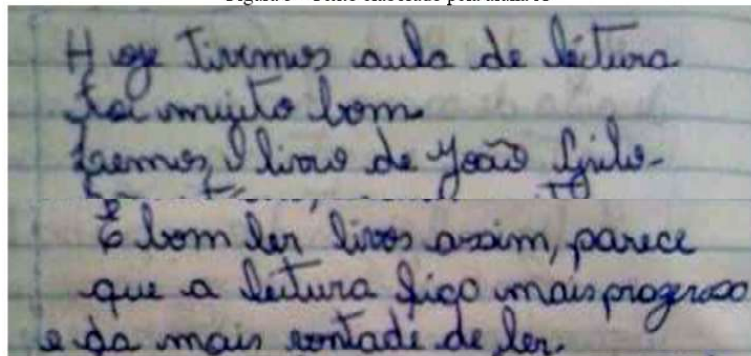 Hoje Tivemos aula de leitura
Foi mujto bom
o livro de João Grilo-
É bom ler livros assim, parece
que a leitura figo mais progeroso
e da mais vontade de ler.